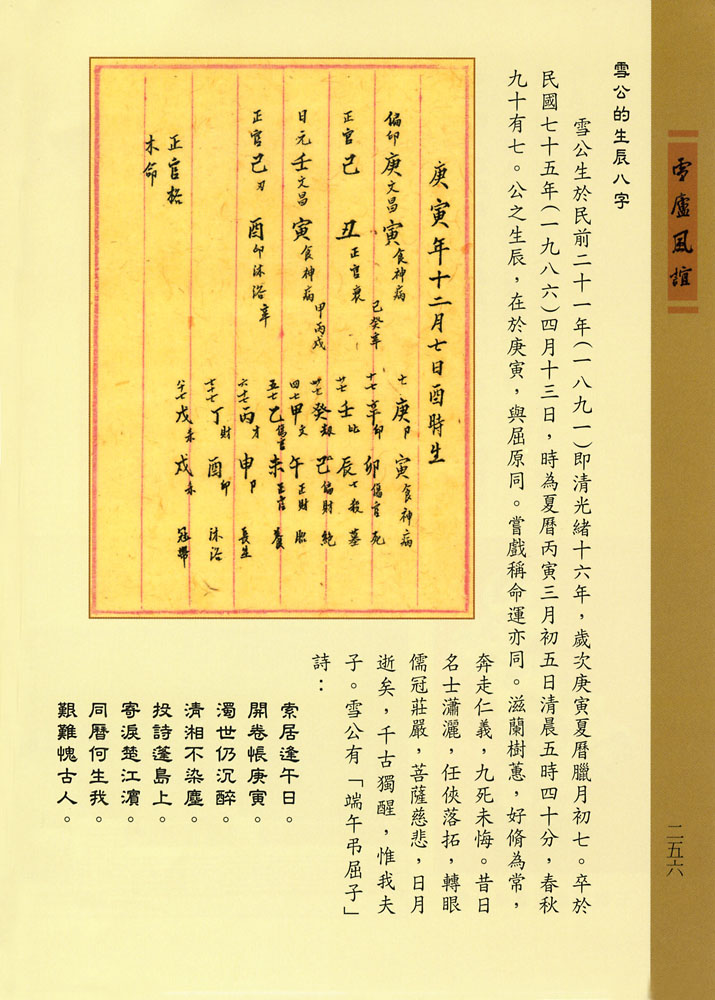 雪廬風誼
雪公的生辰八字
雪公生於民前二十一年(一八九一)即清光緒十六年，歲次庚寅夏曆臘月初七。卒於
民國七十五年(一九八六)四月十三日，時為夏曆丙寅三月初五日清晨五時四十分，春秋
九十有七。公之生辰，在於庚寅，與屈原同。嘗戲稱命運亦同。滋蘭樹蕙，好脩為常，
奔走仁義，九死未悔。昔日
名士瀟灑，任俠落拓，轉眼
儒冠莊嚴，菩薩慈悲，日月
逝矣，千古獨醒，惟我夫
子。雪公有「端午弔屈子」
詩：
索居逢午日。
開卷悵庚寅。
濁世仍沉醉。
清湘不染塵。
投詩蓬島上。
寄淚楚江濱。
同曆何生我。
艱難愧古人。
庚寅年十二月七日酉時生
偏印 庚 文昌 寅 食神 病
正官 己 丑 正官 衰 己癸辛
日元 壬 文昌 寅 食神 病 甲丙戊
正官 己 刃 酉 印 沐浴 辛
正官格
木命
七 庚 卩 寅 食神 病
十七 辛 印 卯 傷官 死
廿七 壬 比 辰 七殺 墓
卅七 癸 劫 巳 偏財 絕
四七 甲 文 午 正財 胎
五七 乙 傷官 未 正官 養
六七 丙 才 申 卩 長生
七十七 丁 財 酉 印 沐浴
八十七 戊 杀 戌 杀 冠帶
二五六